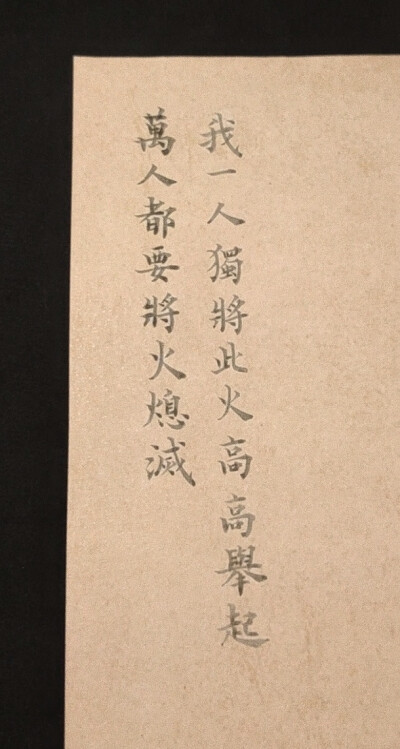 萬人都要將火熄滅
我一人獨將此火高高舉起